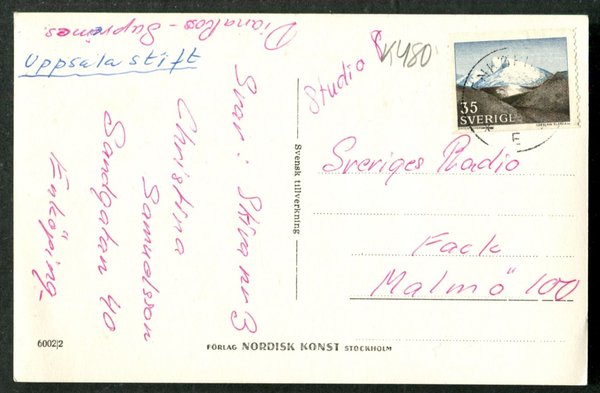 Diana Ross - Supremes.
Uppsala stift
Svar: Skiva nr 3
Christina
Samuelsson
Sandgatan 40
Enköping
Svensk tillverkning
Studio
K480
35
SVERIGE
E
Sveriges Radio
Fack
Malmö 100
6002|2
FÖRLAG NORDISK KONST STOCKHOLM